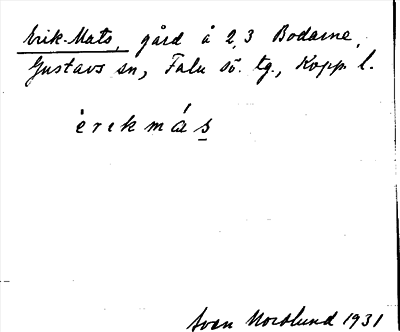 Erik-Mats, gård å 2,3 Bodarne,
Gustavs sn, Falu sö. tg., Kopp. l.
èrekmás
Sven Norslund 1931